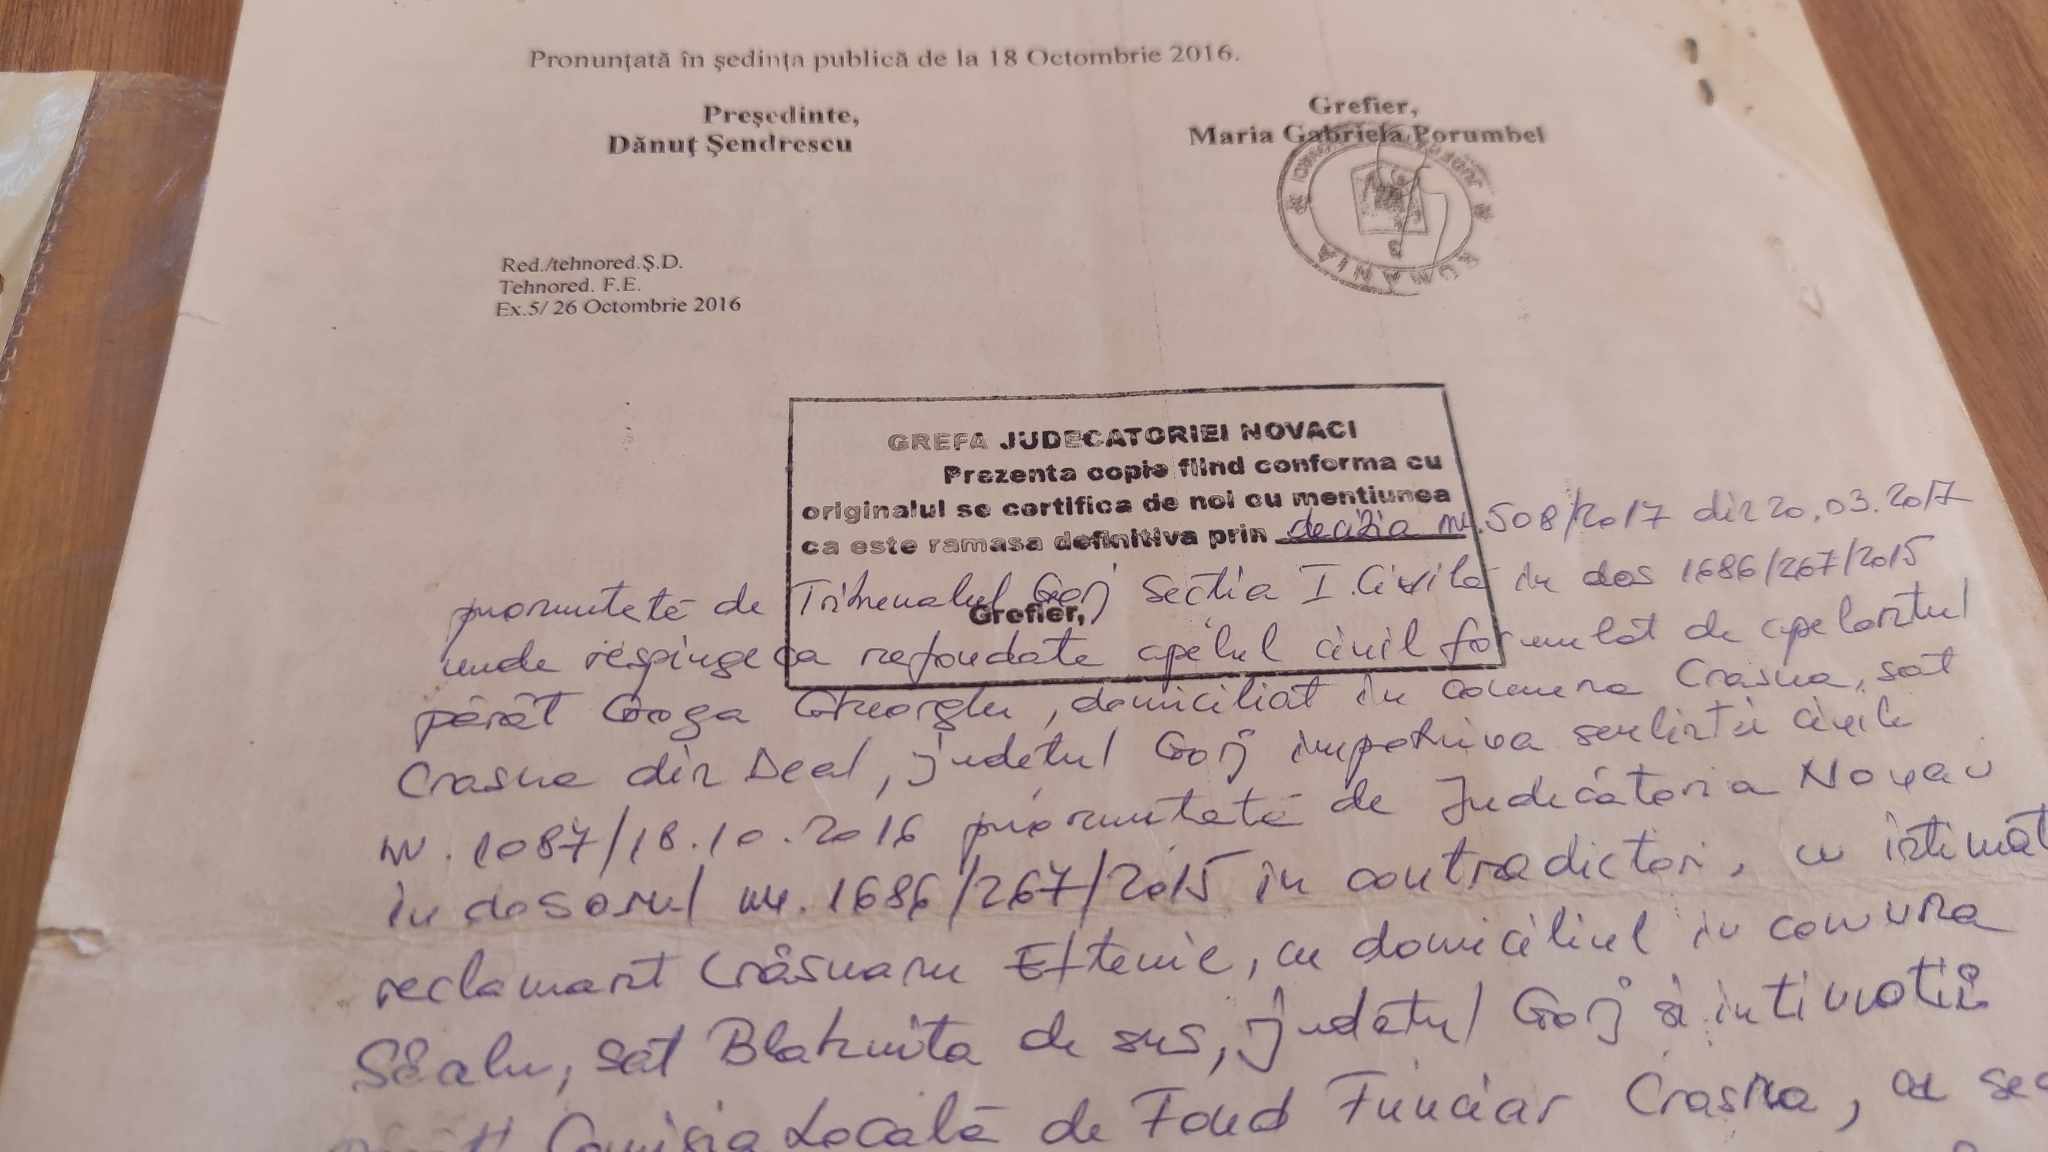 Pronunțată în ședința publică de la 18 Octombrie 2016.
Președinte,
Dănuț Șendrescu
Grefier,
Maria Gabriela Porumbel
ROMANIA
3
Red./tehnored.Ș.D.
Tehnored. F.E.
Ex.5/ 26 Octombrie 2016
GREFA JUDECATORIEI NOVACI
Prezenta copie fiind conforma cu
originalul se certifica de noi cu mentiunea
ca este ramasa definitiva prin decizia nr. 508/2017 din 20.03.2017
Grefier,
pronuntată de Tribunalul Gorj Sectia I Civilă in dos 1686/267/2015
unde respinge ca nefondate apelul civil formulat de apelantul
pârât Goga Gheorghe, domiciliat in comuna Crasna, sat
Crasna din Deal, judetul Gorj impotriva sentintei civile
nr. 1087/18.10.2016 pronuntată de Judecătoria Novaci
in dosarul nr. 1686/267/2015 in contradictori, cu intimat
reclamant Crâsnaru Eftenie, cu domiciliul in comuna
Săcelu, sat Blahnita de sus, judetul Gorj si intimatii
Comisia Locală de Fond Funciar Crasna, cu